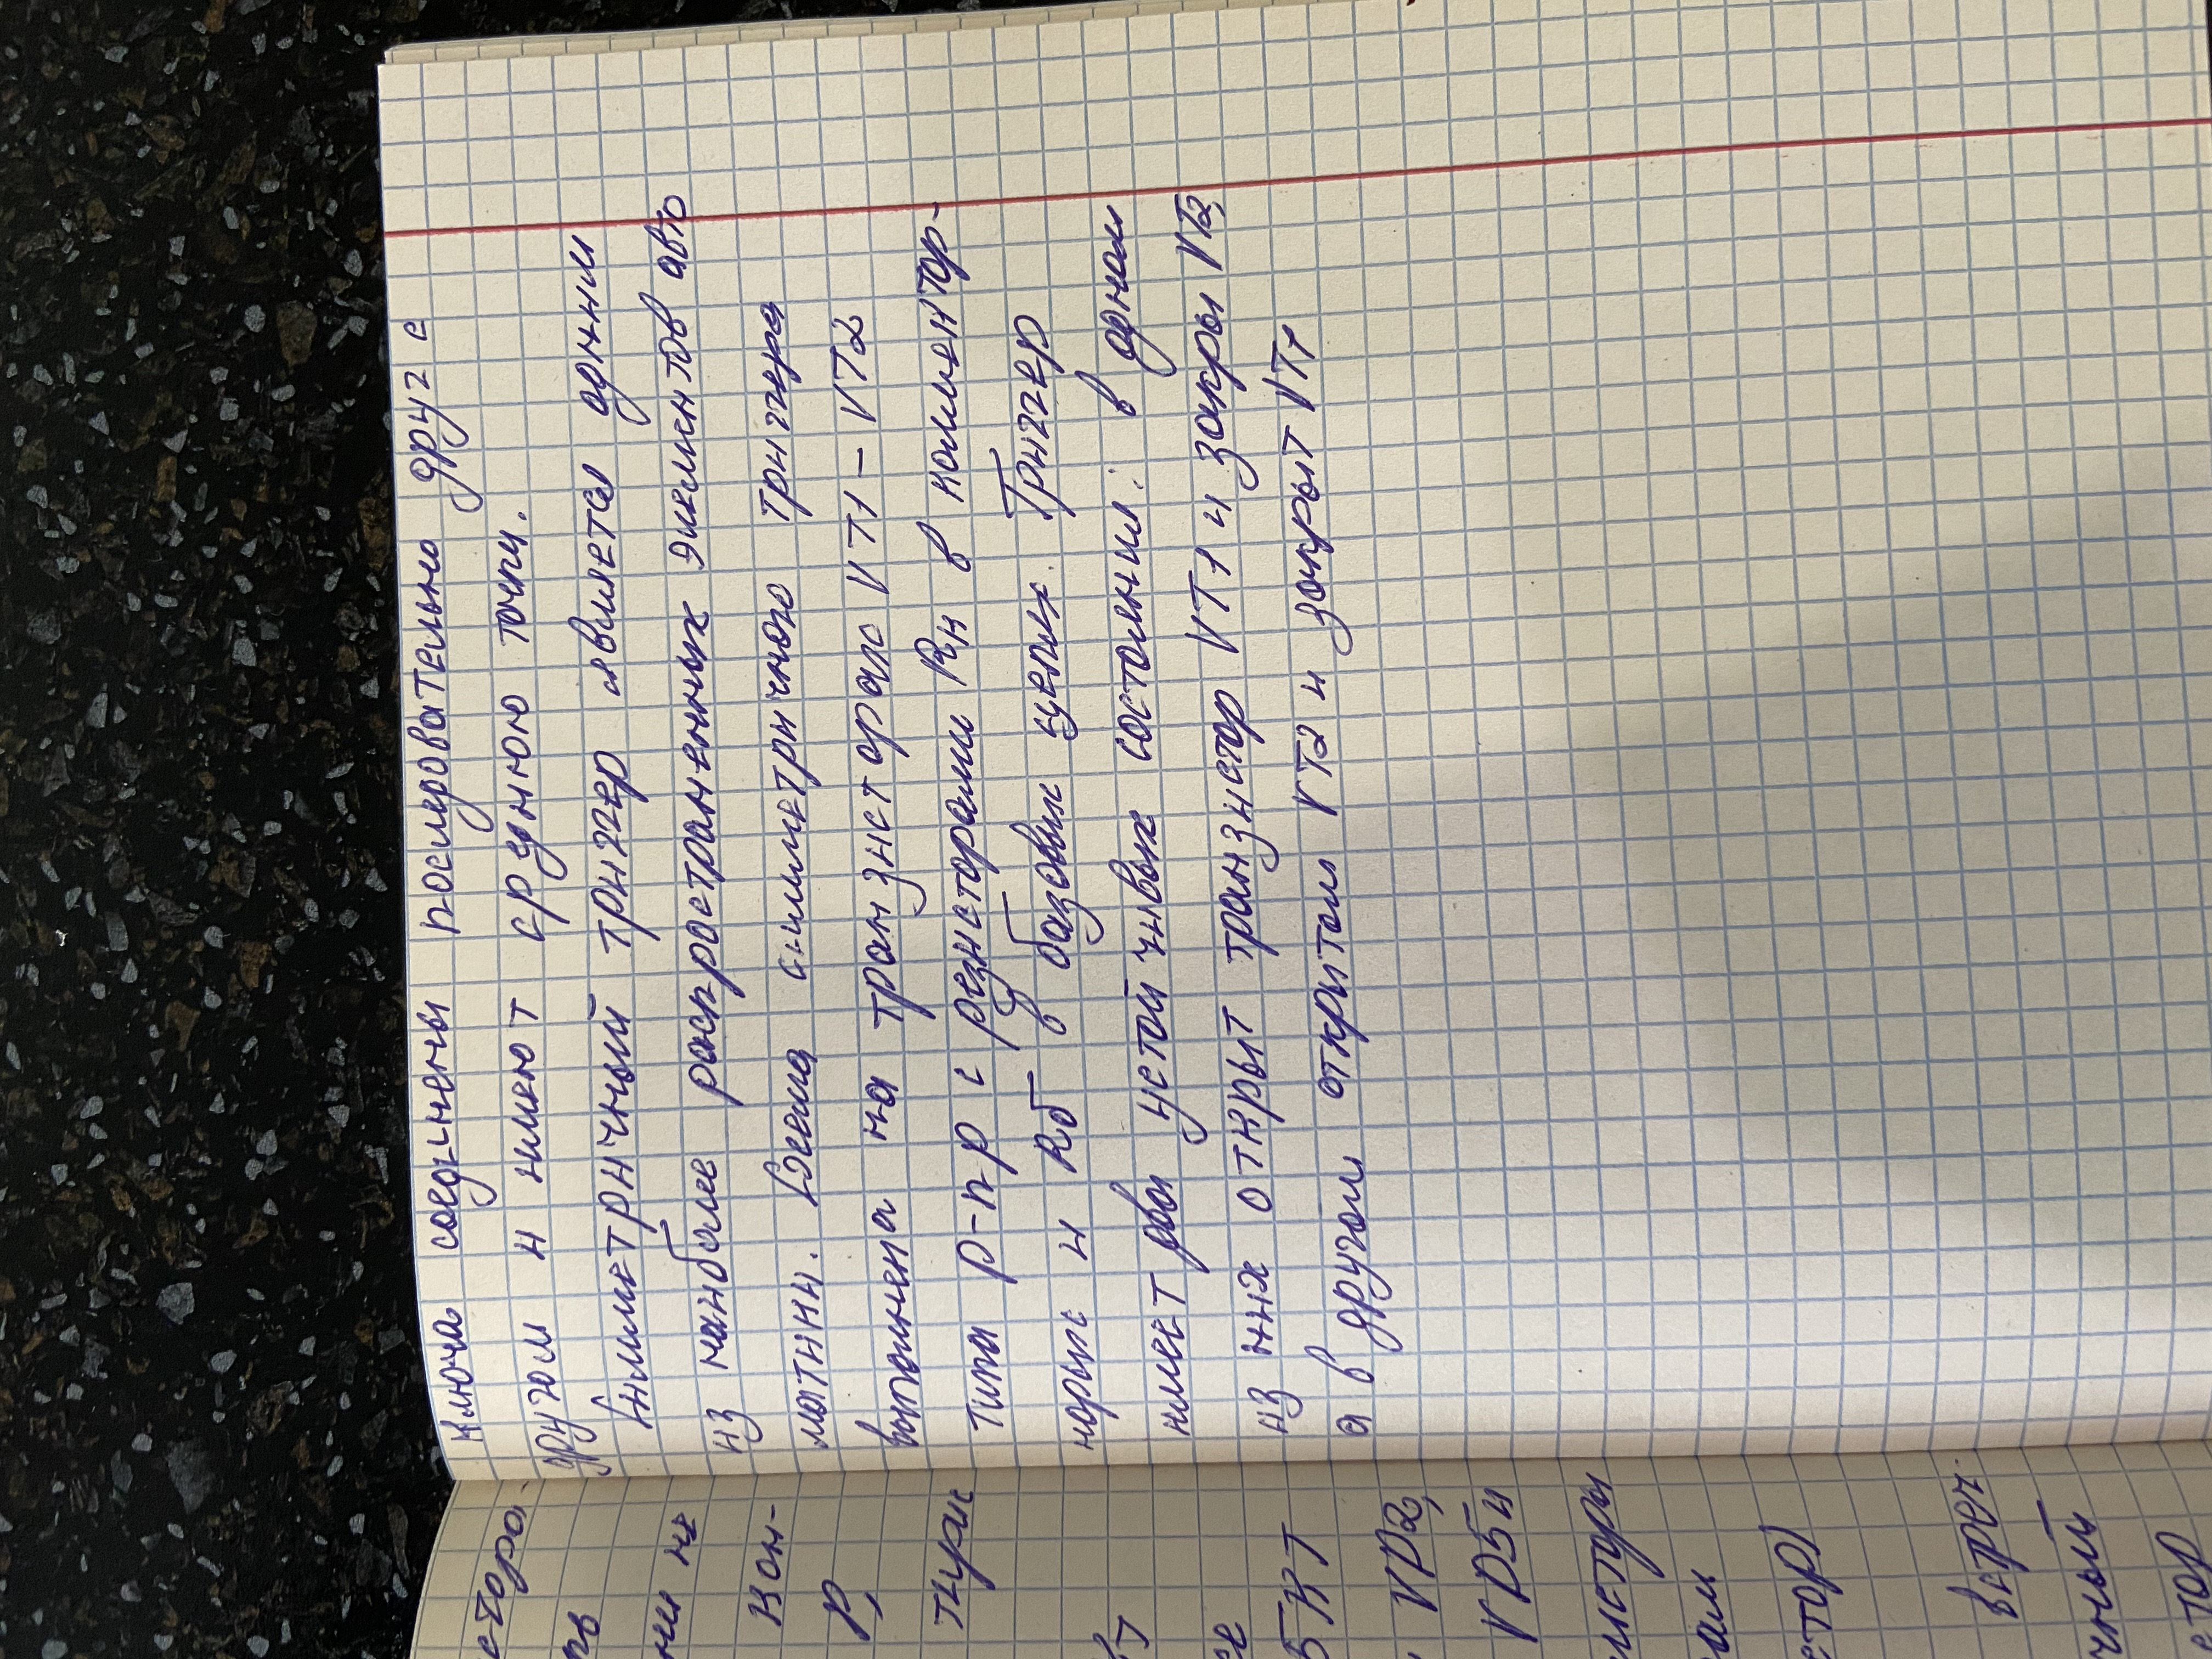 Ключа соединены последовательно друг с
другом и имеют среднюю точку.
Симметричный триггер является одним
из наиболее распространенных элементов авто
матики. Схема симметричного триггера
выполнена на транзисторах VT1 – VT2
типа p-n-p с резисторами Rн в коллектор-
норых и Rб в базовых цепях. Триггер
имеет два устойчивых состояния: в одном
из них открыт транзистор VT1 и закры VT2,
а в другом откритом VT2 и закрыт VT1
стора
ни не
Кон-
P,
БКТ
, VD2,
VD5 и
ам
стор)
встреч.
чный
стор